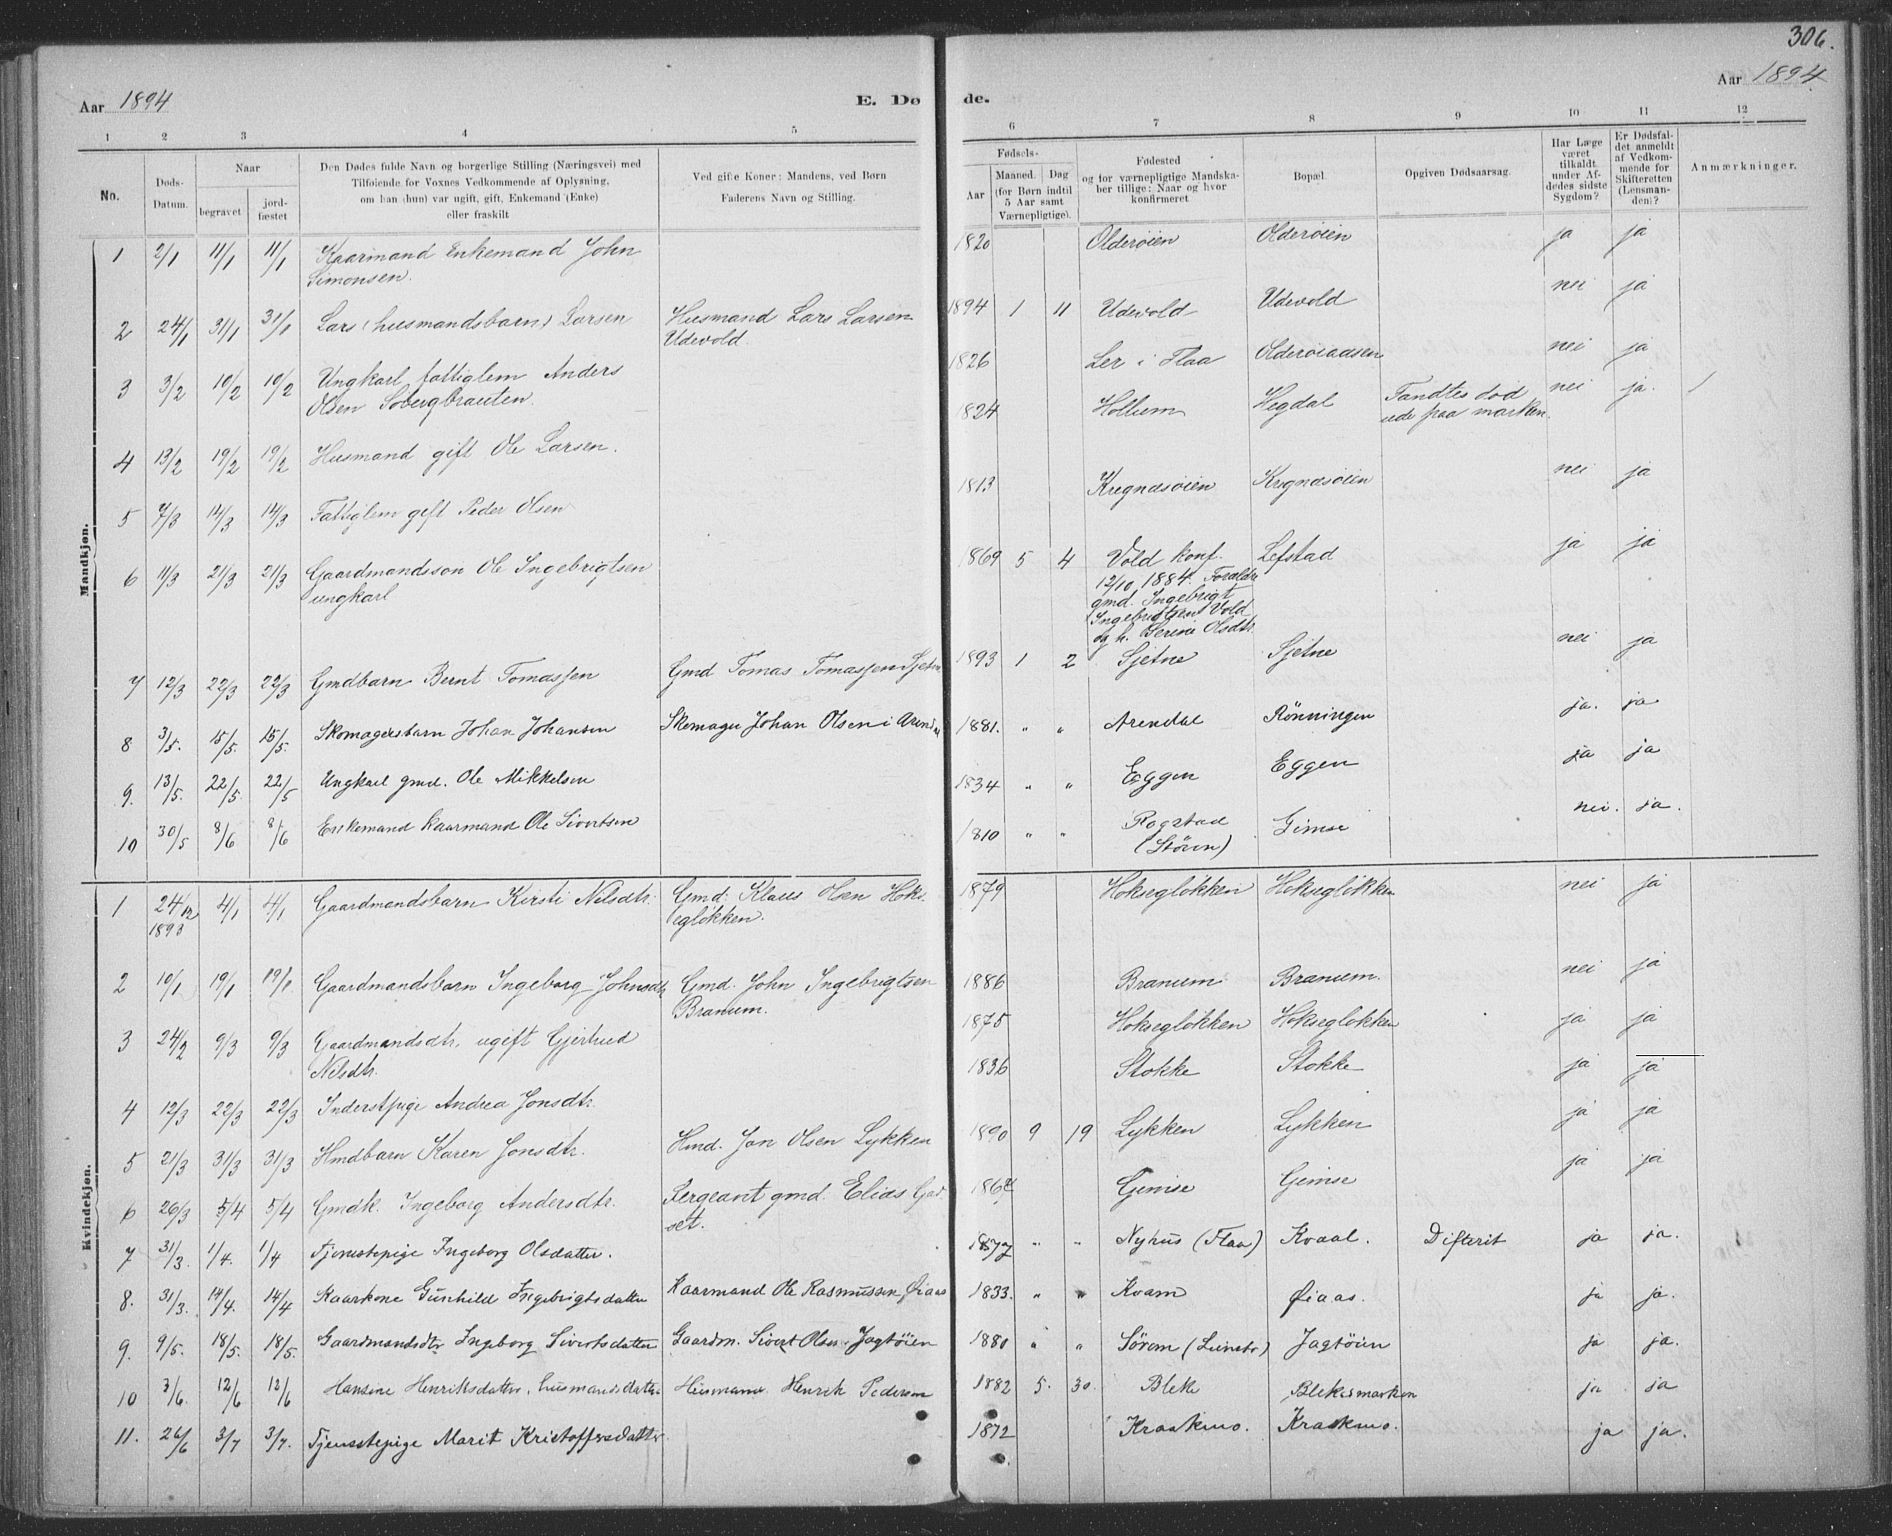 306.
Aar 1894
E. Dø
de.
Aar 1894.
1 2 3 4 5 6 7 8 9 10 11 12
No.
Døds-Datum.
Naar
begravet
jord-fæstet
Den Dødes fulde Navn og borgerlige Stilling (Næringsvei) med
Tilføiende for Voxnes Vedkommende af Oplysning,
om han (hun) var ugift, gift, Enkemand (Enke)
eller fraskilt
Ved gifte Koner: Mandens, ved Børn
Faderens Navn og Stilling.
Fødsels-
Aar
Maaned. Dag
(for Børn indtil
5 Aar samt
Værnepligtige).
Fødested
og for værnepligtige Mandska-
ber tillige: Naar og hvor
konfirmeret
Bopæl.
Opgiven Dødsaarsag.
Har Læge
været
tilkaldt
under Af-
dødes sidste
Sygdom?
Er Dødsfal-
det anmeldt
af Vedkom-
mende for
Skifteretten
(Lensman-
den)?
Anmærkninger.
Mandkjøn.
1 2/1 11/1 11/1 Kaarmand Enkemand John
Simonsen. 1820 Olderøien Olderøien ja ja
2 24/1 31/1 31/1 Lars (husmandsbarn) Larsen Husmand Lars Larsen
Udevold. 1894 1 11 Udevold Udevold nei ja
3 3/2 10/2 10/2 Ungkarl fattiglem Anders
Olsen Sobergbrauten. 1826 Ler i Flaa Olderøiaasen nei ja
4 13/2 19/2 19/2 Husmand gift Ole Larsen. 1824 Hollum Hegdal Fandtes død
ude paa marken. nei ja. 1
5 7/3 14/3 14/3 Fattiglem gift Peder Olsen 1813 Kregnæsøien Kregnæsøien nei ja
6 11/3 21/3 21/3 Gaardmandssøn Ole Ingebrigtsen
ungkarl 1869 5 4 Vold konf. Lefstad ja ja
12/10 1884. Forældre
gmd. Ingebrigt
Ingebrigtsen Vold
og h. Serine Olsdtr.
7 12/3 22/3 22/3 Gmdbarn Bernt Tomassen Gmd Tomas Tomassen Sjetne 1893 1 2 Sjetne Sjetne nei ja
8 3/5. 15/5. 15/5. Skomagersbarn Johan Johansen Skomager Johan Olsen i Arendal 1881. " " Arendal Rønningen ja. ja
9. 13/5. 22/5. 22/5 Ungkarl gmd. Ole Mikkelsen 1834 " " Eggen Eggen ja ja
10 30/5 8/6 8/6 Enkemand kaarmand Ole Sivertsen 1810 " " Rogstad
(Støren) Gimse nei. ja.
Kvindekjøn.
1 24/12
1893 4/1 4/1 Gaardmandsbarn Kirsti Nilsdtr. Gmd. Klaus Olsen Hoks-
egløkken. 1879 Hoksegløkken Hoksegløkken nei ja
2 10/1 19/1 19/1 Gaardmandsbarn Ingeborg Johnsdtr Gmd. John Ingebrigtsen
Branum. 1886 Branum Branum. nei ja
3 24/2 9/3 9/3 Gaardmandsdtr. ugift Gjertrud
Nilsdtr. 1875 Hoksegløkken Hoksegløkken ja ja
4 12/3 22/3 22/3 Inderstpige Andrea Jonsdtr. 1836 Stokke Stokke ja ja
5 21/3 31/3 31/3 Hmdbarn Karen Jonsdtr. Hmd. Jon Olsen Lykken 1890 9 19 Lykken Lykken ja ja
6 26/3 5/4 5/4 Gmdk. Ingeborg Andersdtr. Sergeant gmd. Elias
set. Gimse Gimse ja ja
7 31/3. 1/4. 1/4 Tjenestepige Ingeborg Olsdatter. 1877 " " Nyhus (Flaa) Kvaal. Difterit ja ja.
8. 31/3. 14/4. 14/4 Kaarkone Gunhild Ingebrigtsdatter Kaarmand Ole Rasmussen Øiaas 1833. " " Kvam Øiaas. ja ja.
9. 9/5. 18/5. 18/5. Gaardmandsdtr Ingeborg Sivertsdatter Gaardm. Sivert Olsen Jagtøien 1880 " " Sørem (Leinstr) Jagtøien ja ja.
10 3/6. 12/6 12/6 Hansine Henriksdatter, husmandsdatter Husmand Henrik Pedersen 1882 5. 30. Blekk Blekesmarken ja ja
11. 26/6 3/7 3/7. Tjenestepige Marit Kristoffersdatter. 1872 Kraakmo. Kraakmo. ja ja.